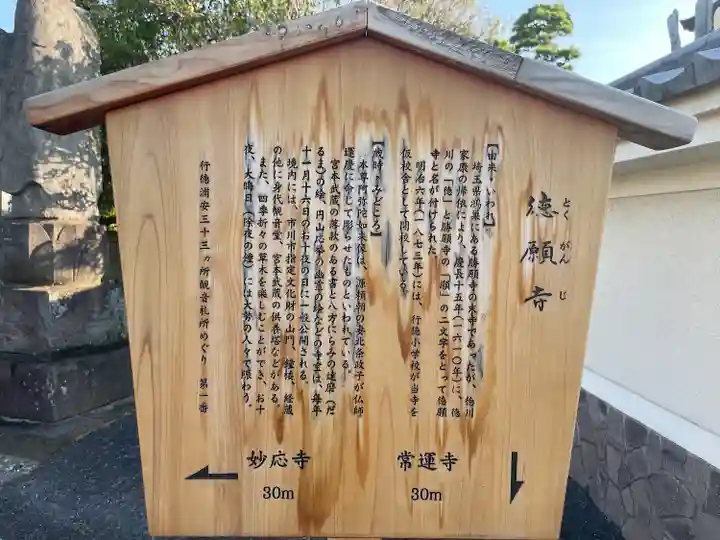 徳願寺
とくがんじ
【由来・いわれ】
埼玉県鴻巣にある勝願寺の末寺であったが、徳川
家康の帰依により、慶長十五年(一六一〇年)に、徳
川の「徳」と勝願寺の「願」の二文字をとって徳願
寺と名が付けられた。
明治六年(一八七三年)には、行徳小学校が当寺を
仮校舎として開校している。
【歳時・みどころ】
本尊阿弥陀如来像は、源頼朝の妻北条政子が仏師
運慶に命じて彫らせたものといわれている。
宮本武蔵の落款のある書と八方にらみの達磨(だ
るま)の絵、円山応挙の幽霊の絵などの寺宝は、毎年
十一月十六日のお十夜の日に一般公開される。
境内には、市川市指定文化財の山門、鐘楼、経蔵
の他に身代観音堂、宮本武蔵の供養塔などがある。
また、四季折々の草木を楽しむことができ、お十
夜、大晦日(除夜の鐘)には大勢の人々で賑わう。
行徳浦安三十三ヵ所観音札所めぐり 第一番
常運寺
30m
妙応寺
30m